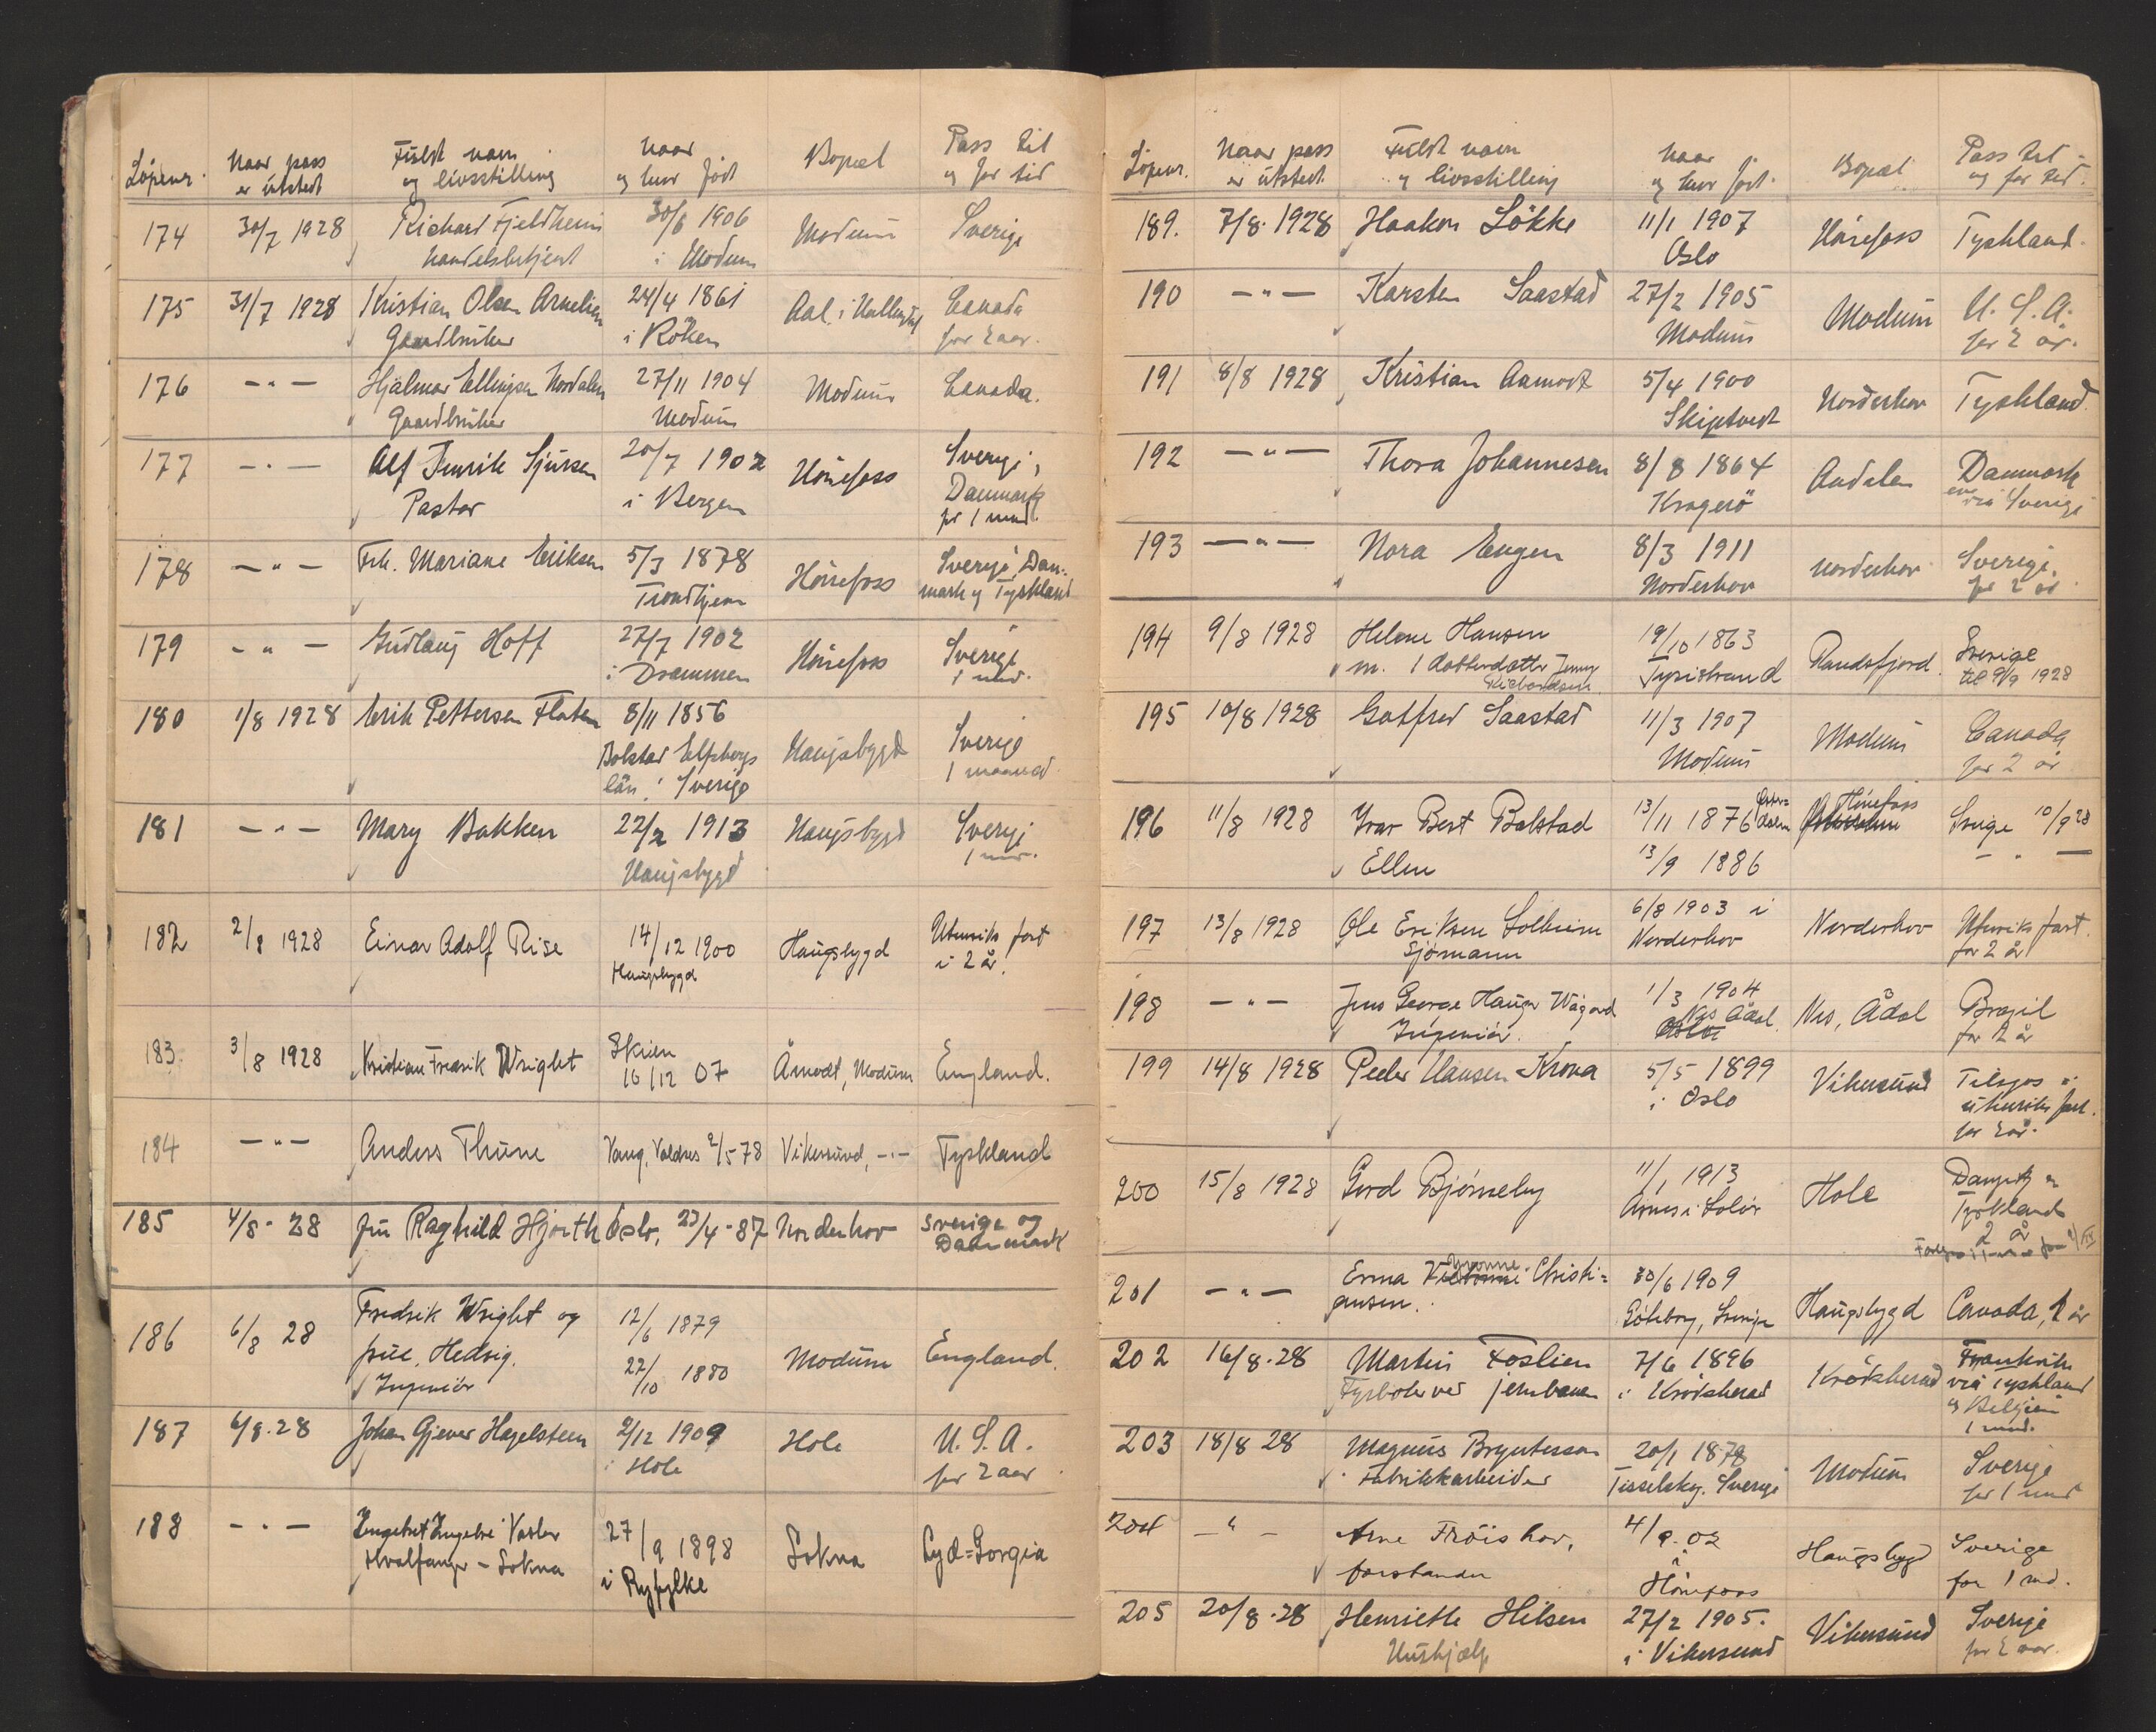 Löpenr. Naar pass er utstedt Fuldt navn og livsstilling Naar og hvor født Bopæl Pass til og for tid
174 30/7 1928 Richard Fjeldheim 30/6 1906 Modum Sverige
handelsbetjent i Modum
175 31/7 1928 Kristian Olsen 24/4 1861 Aal i Hallingdal Canada
Gaardbruker i Röken for 2 aar.
176 - " - Hjalmar Ellingsen Nordalen 27/11 1904 Modum Canada.
Gaardbruker Modum
177 - " - Alf Henrik Sjursen 20/7 1902 Hönefoss Sverige,
Pastor i Bergen Danmark
for 1 mnd.
178 - " - Frk. Mariane Eriksen 5/3 1878 Hönefoss Sverige, Dan-
Trondhjem mark og Tyskland
179 - " - Gudlaug Hoff 27/7 1902 Hönefoss Sverige
i Drammen 1 mnd.
180 1/8 1928 Erik Pettersen Flaten 8/11 1856 Haugsbygd Sverige
Bolstad Elfsborgs 1 maaned
län i Sverige
181 - " - Mary Bakken 22/2 1913 Haugsbygd Sverige
Haugsbygd 1 mnd.
182 2/8 1928 Einar Adolf Rise 14/12 1900 Haugsbygd Utenriks fart
Haugsbygd i 2 år.
183. 3/8 1928 Kristian Fredrik Wright Skien Åmodt, Modum England.
16/12 07
184 - " - Anders Thune Vang, Valdres 2/5 78 Vikersund, - " - Tyskland
185 4/8 - 28 fru Raghild Hjorth Oslo, 23/4 - 87 Norderhov Sverige og
Danmark
186 6/8 28 Fredrik Wright og 12/6 1879 Modum England.
frue, Hedvig. 22/10 1880
Ingeniör
187 6/8. 28 Johan Gjever Hagelsteen 2/12 1909 Hole U. S. A.
i Hole for 2 aar
188 - " - Engebret 27/9 1898 Sokna Syd=Gorgia
Hvalfanger - Sokna i Ryfylke
Löpenr. Naar pass er utstedt Fuldt navn og livsstilling Naar og hvor født. Bopæl Pass til og for tid.
189. 7/8. 1928 Haakon Lökke 11/1 1907 Hönefoss Tyskland.
Oslo
190 - " - Karsten Saastad 27/2 1905 Modum U. S. A.
Modum for 2 år.
191 8/8 1928 Kristian Aamodt 5/4 1900 Norderhov Tyskland.
Skiptvedt
192 - " - Thora Johannesen 8/8 1864 Aadalen Danmark
Kragerö via Sverige
193 - " - Nora Engen 8/3 1911 Norderhov Sverige.
Norderhov for 2 år
194 9/8 1928 Helene Hansen 19/10 1863 Randsfjord Sverige
m. 1 datterdatter Jenny Tyristrand til 9/9 1928
Richardsen
195 10/8 1928 Gotfred Saastad 11/3 1907 Modum Canada
Modum for 2 år
196 11/8 1928 Ivar Bert Bolstad 13/11 1876 Österdalen Hönefoss Sverige 10/9 28
Ellen 13/9 1886 - " -
197 13/8 1928 Ole Eriksen Solheim 6/8 1903 i Norderhov Utenriks fart.
Sjømann Norderhov for 2 år
198 - " - Jens George Hauger Wågård 1/3 1904 Nes, Ådal Brasil
Ingeniør. Nes Ådal for 2 år
Oslo
199 14/8 1928 Peder Hansen Krona 5/5 1899 Vikersund Tilsjøs i
i Oslo utenriks fart.
for 2 år.
200 15/8 1928 Gerd Bjørneby 11/1 1913 Hole Danzig og
Åsnes i Solör Tyskland
2 år
201 - " - Erna Yvonne Christi= 30/6 1909 Haugsbygd Canada, 1 år
ansen. Göteborg, Sverige
202 16/8. 28 Martin Foslien 7/6 1896 Krödsherad Frankrike
Fyrböter ved jernbanen i Krödsherad via Tyskland
og Belgien
1 mnd.
203 18/8 28 Magnus Bryntesson 20/1 1878 Modum Sverige
Fabrikkarbeider Tisselskog. Sverige for 1 mnd
204 - " - Arne Fröishov, 4/9. 02 Haugsbygd Sverige
forstander i for 1 md.
Hönefoss
205 20/8. 28 Henriette Hilsen 27/2 1905. Vikersund Sverige
Hushjælp i Vikersund for 2 aar.